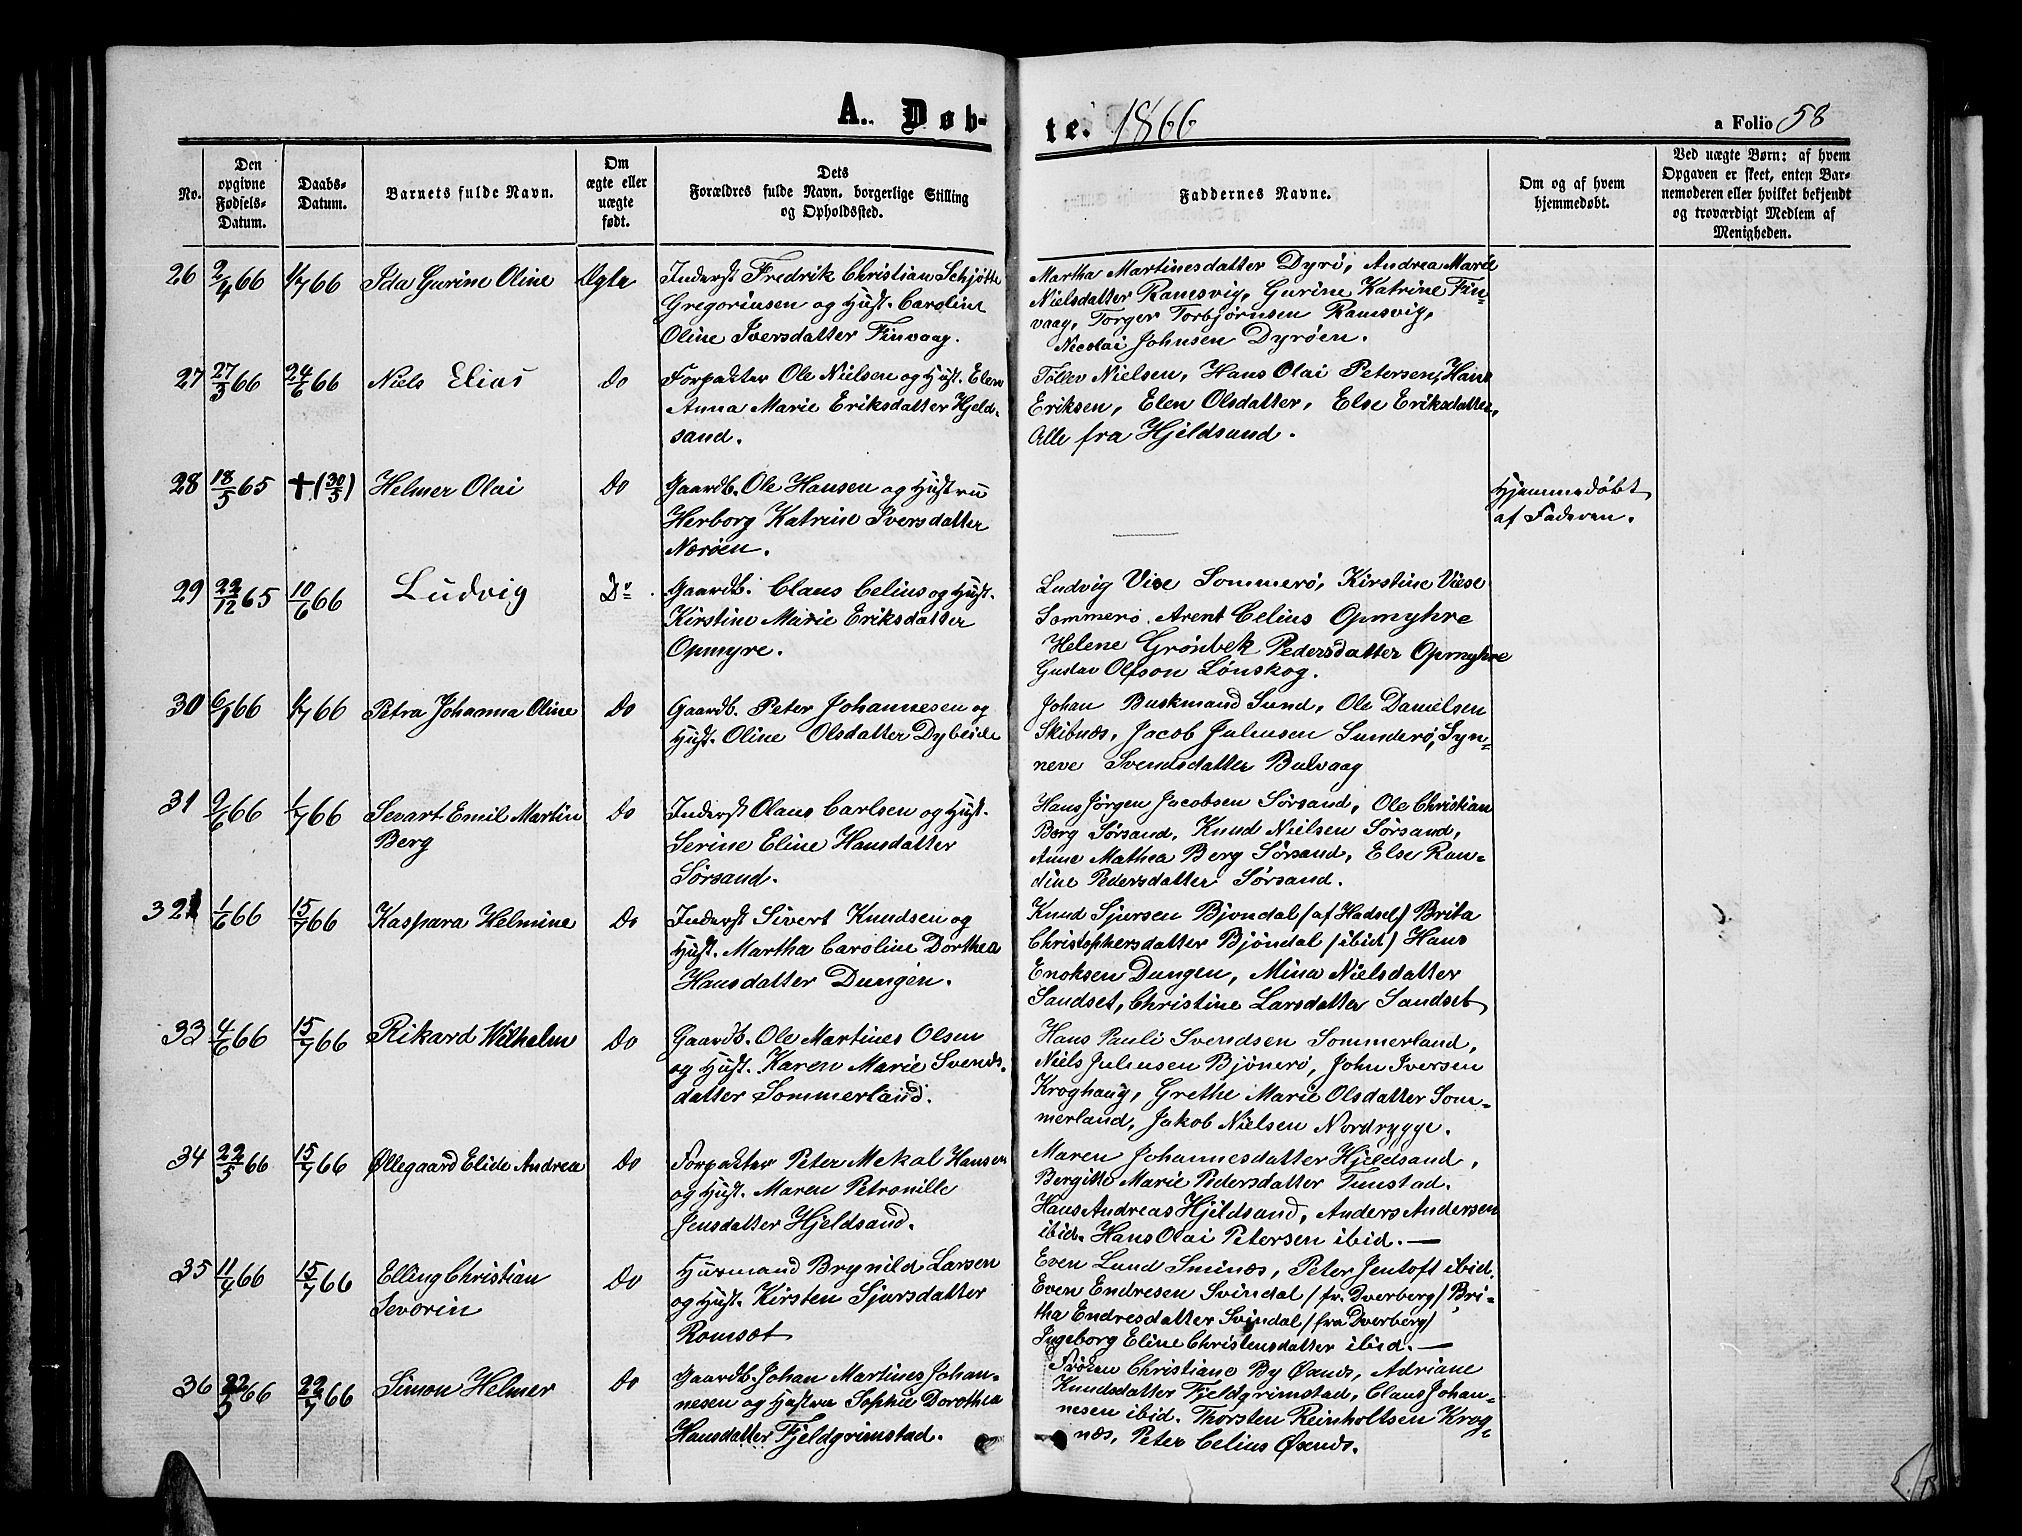 A. Døb-
te. 1866
a Folio 58
No.
Den
opgivne
Fødsels-
Datum.
Daabs-
Datum.
Barnets fulde Navn.
Om
ægte eller
uægte
født.
Dets
Forældres fulde Navn, borgerlige Stilling
og Opholdssted.
Faddernes Navne.
Om og af hvem
hjemmedøbt.
Ved uægte Børn: af hvem
Opgaven er skeet, enten Bar-
nemoderen eller hvilket bekjendt
og troværdigt Medlem af
Menigheden.
26 2/4 66 1/7 66 Ida Gurine Oline Ægte
Inderst Fredrik Christian Schjøtte
Gregoriusen og Hust. Caroline
Oline Iversdatter Finvaag.
Martha Martinesdatter Dyrö, Andrea Marie
Nielsdatter Ramsvig, Gurine Katrine Fin-
vaag, Torger Torbjørnsen Ramsvig,
Nicolai Johnsen Dyrøen.
27 27/3 66 24/6 66 Niels Elias Do
Forpakter Ole Nielsen og Hust. Elen
Anna Marie Eriksdatter Hjeld-
sand.
Tollev Nielsen, Hans Olai Petersen, Hans
Eriksen, Elen Olsdatter, Else Eriksdatter,
Alle fra Hjeldsand.
28 18/5 65 † (30/5) Helmer Olai Do
Gaardb. Ole Hansen og Hustru
Herborg Katrine Iversdatter
Nærøen.
Hjemmedøbt
af Faderen.
29 22/12 65 10/6 66 Ludvig Do
Gaardb. Claus Celius og Hust.
Kirstine Marie Eriksdatter
Opmyre.
Ludvig Vise Sommerö, Kirstine Viese
Sommerö, Arent Celius Opmyhre
Helene Grønbek Pedersdatter Opmyhre
Gustav Olfson Lønskog.
30 6/1 66 1/7 66 Petra Johanna Oline Do
Gaardb. Peter Johannesen og
Hust. Oline Olsdatter Dybeide
Johan Buskmand Sund, Ole Danielsen
Skibnæs, Jacob Juliusen Sunderö, Syn-
neve Svendsdatter Bulvaag
31 9/6 66 1/7 66 Sevart Emil Martin
Berg
Do
Inderst Olaus Carlsen og Hust.
Serine Eline Hansdatter
Sørsand.
Hans Jörgen Jacobsen Sørsand, Ole Christian
Berg Sørsand, Knud Nielsen Sørsand,
Anne Mathea Berg Sørsand, Else Ran-
dine Pedersdatter Sørsand.
32 1/6 66 15/7 66 Kaspara Helmine Do
Inderst Sivert Knudsen og
Hust. Martha Caroline Dorthea
Hansdatter Dungen.
Knud Sjursen Bjøndal /af Hadsel/ Brita
Christophersdatter Bjöndal /ibid/ Hans
Enoksen Dungen, Mina Nielsdatter
Sandset, Christine Larsdatter Sandset
33 4/6 66 15/7 66 Rikard Wilhelm Do
Gaardb. Ole Martines Olsen
og Hust. Karen Marie Svends-
datter Sommerland.
Hans Pauli Svendsen Sommerland,
Niels Juliusen Bjönerö, John Iversen
Kroghaug, Grethe Marie Olsdatter Som-
merland, Jakob Nielsen Nordrygge.
34 22/5 66 15/7 66 Øllegaard Elide Andrea Do
Forpakter Peter Mekal Hansen
og Hust. Maren Petronille
Jensdatter Hjeldsand.
Maren Johannesdatter Hjeldsand,
Bergitte Marie Pedersdatter Tunstad.
Hans Andreas Hjeldsand, Anders Andersen
ibid. Hans Olai Petersen ibid. —
35 11/4 66 15/7 66 Elling Christian
Severin
Do
Husmand Brynild Larsen
og Hust. Kirsten Sjursdatter
Romsæt
Even Lund Sminæs, Peter Jentoft ibid.
Even Endresen Svindal /fr. Dverberg/ Bri-
tha Endresdatter Svindal /fra Dverberg/
Ingeborg Eline Christensdatter ibid. —
36 22/5 66 22/7 66 Simon Helmer Do
Gaardb. Johan Martines Johan-
nesen og Hustru Sophie Dorothea
Hansdatter Fjeldgrimstad.
Frøken Christiane By Øxnæs, Adriane
Knudsdatter Fjeldgrimstad, Claus Johan-
nesen ibid. Thorsten Reinholtsen Krog-
næs, Peter Celius Øxnæs.